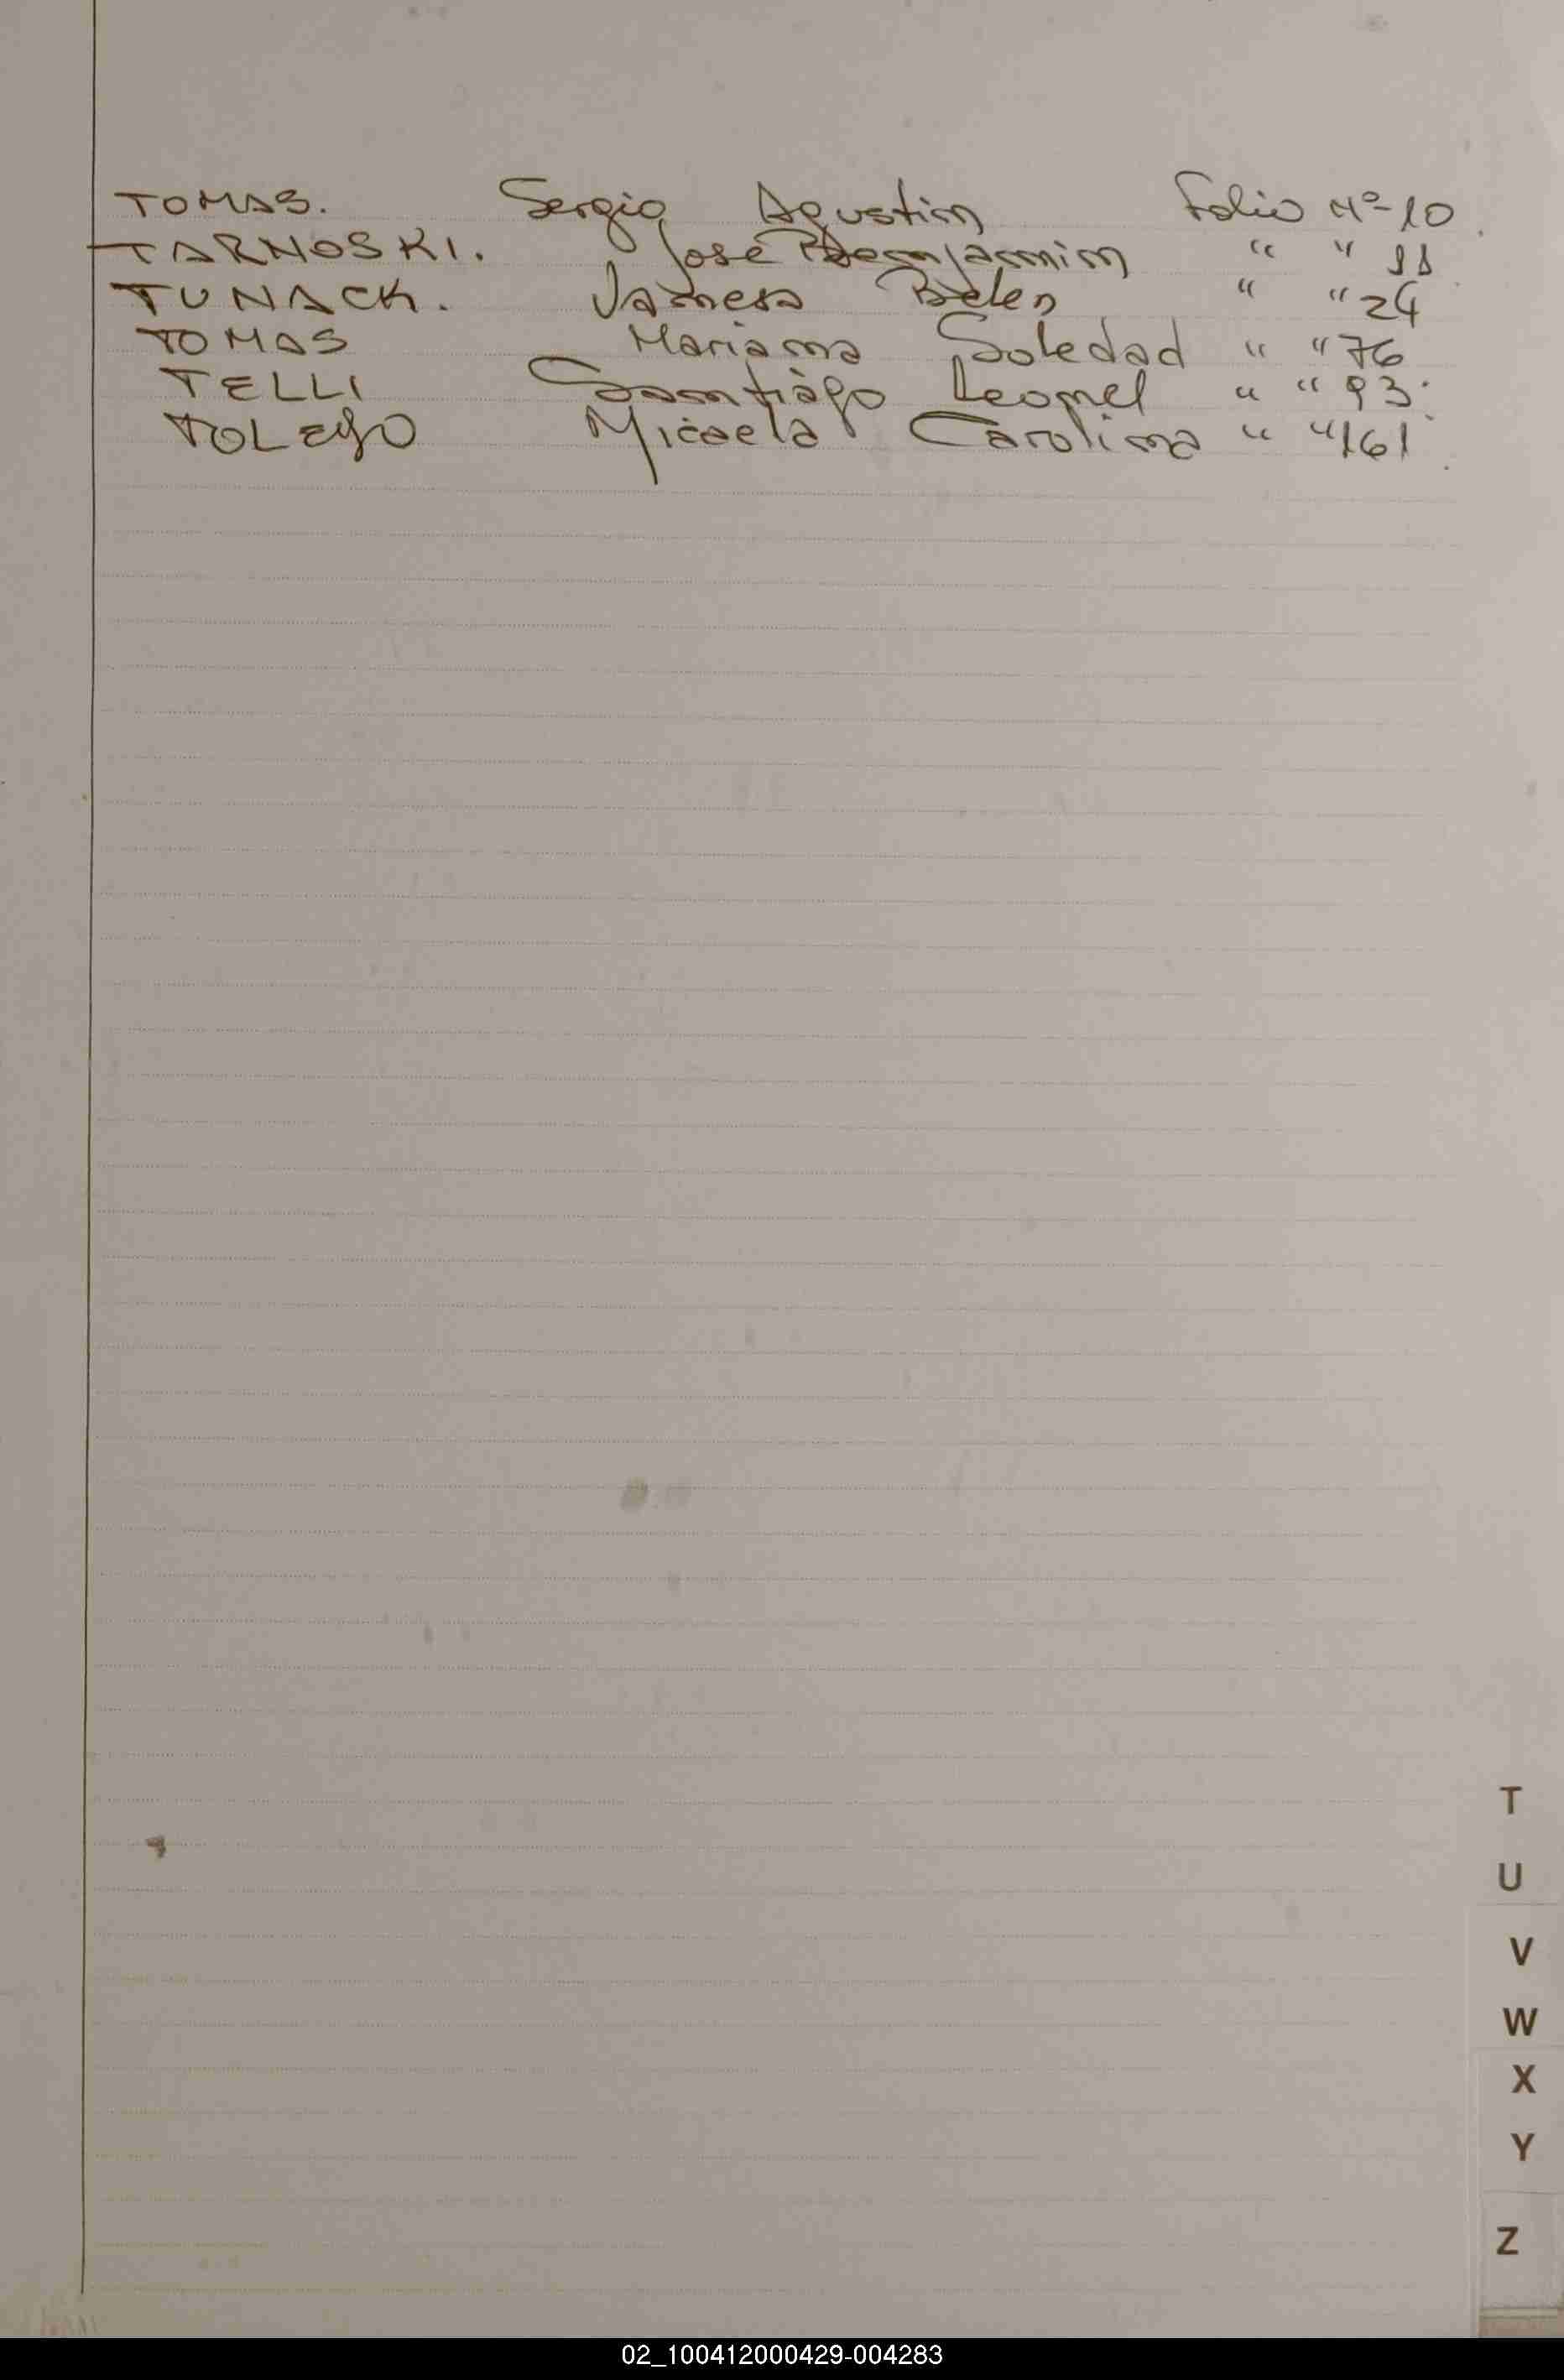 TOMAS. Sergio Agustin Folio Nº 10.
TARNOSKI. José Benjamin " " 11
TUNACK. Vanesa Belen " " 24
TOMAS Mariana Soledad " " 76
TELLI Santiago Leonel " " 93.
TOLEDO Micaela Carolina " " 161.
T
U
V
W
X
Y
Z
02_100412000429-004283